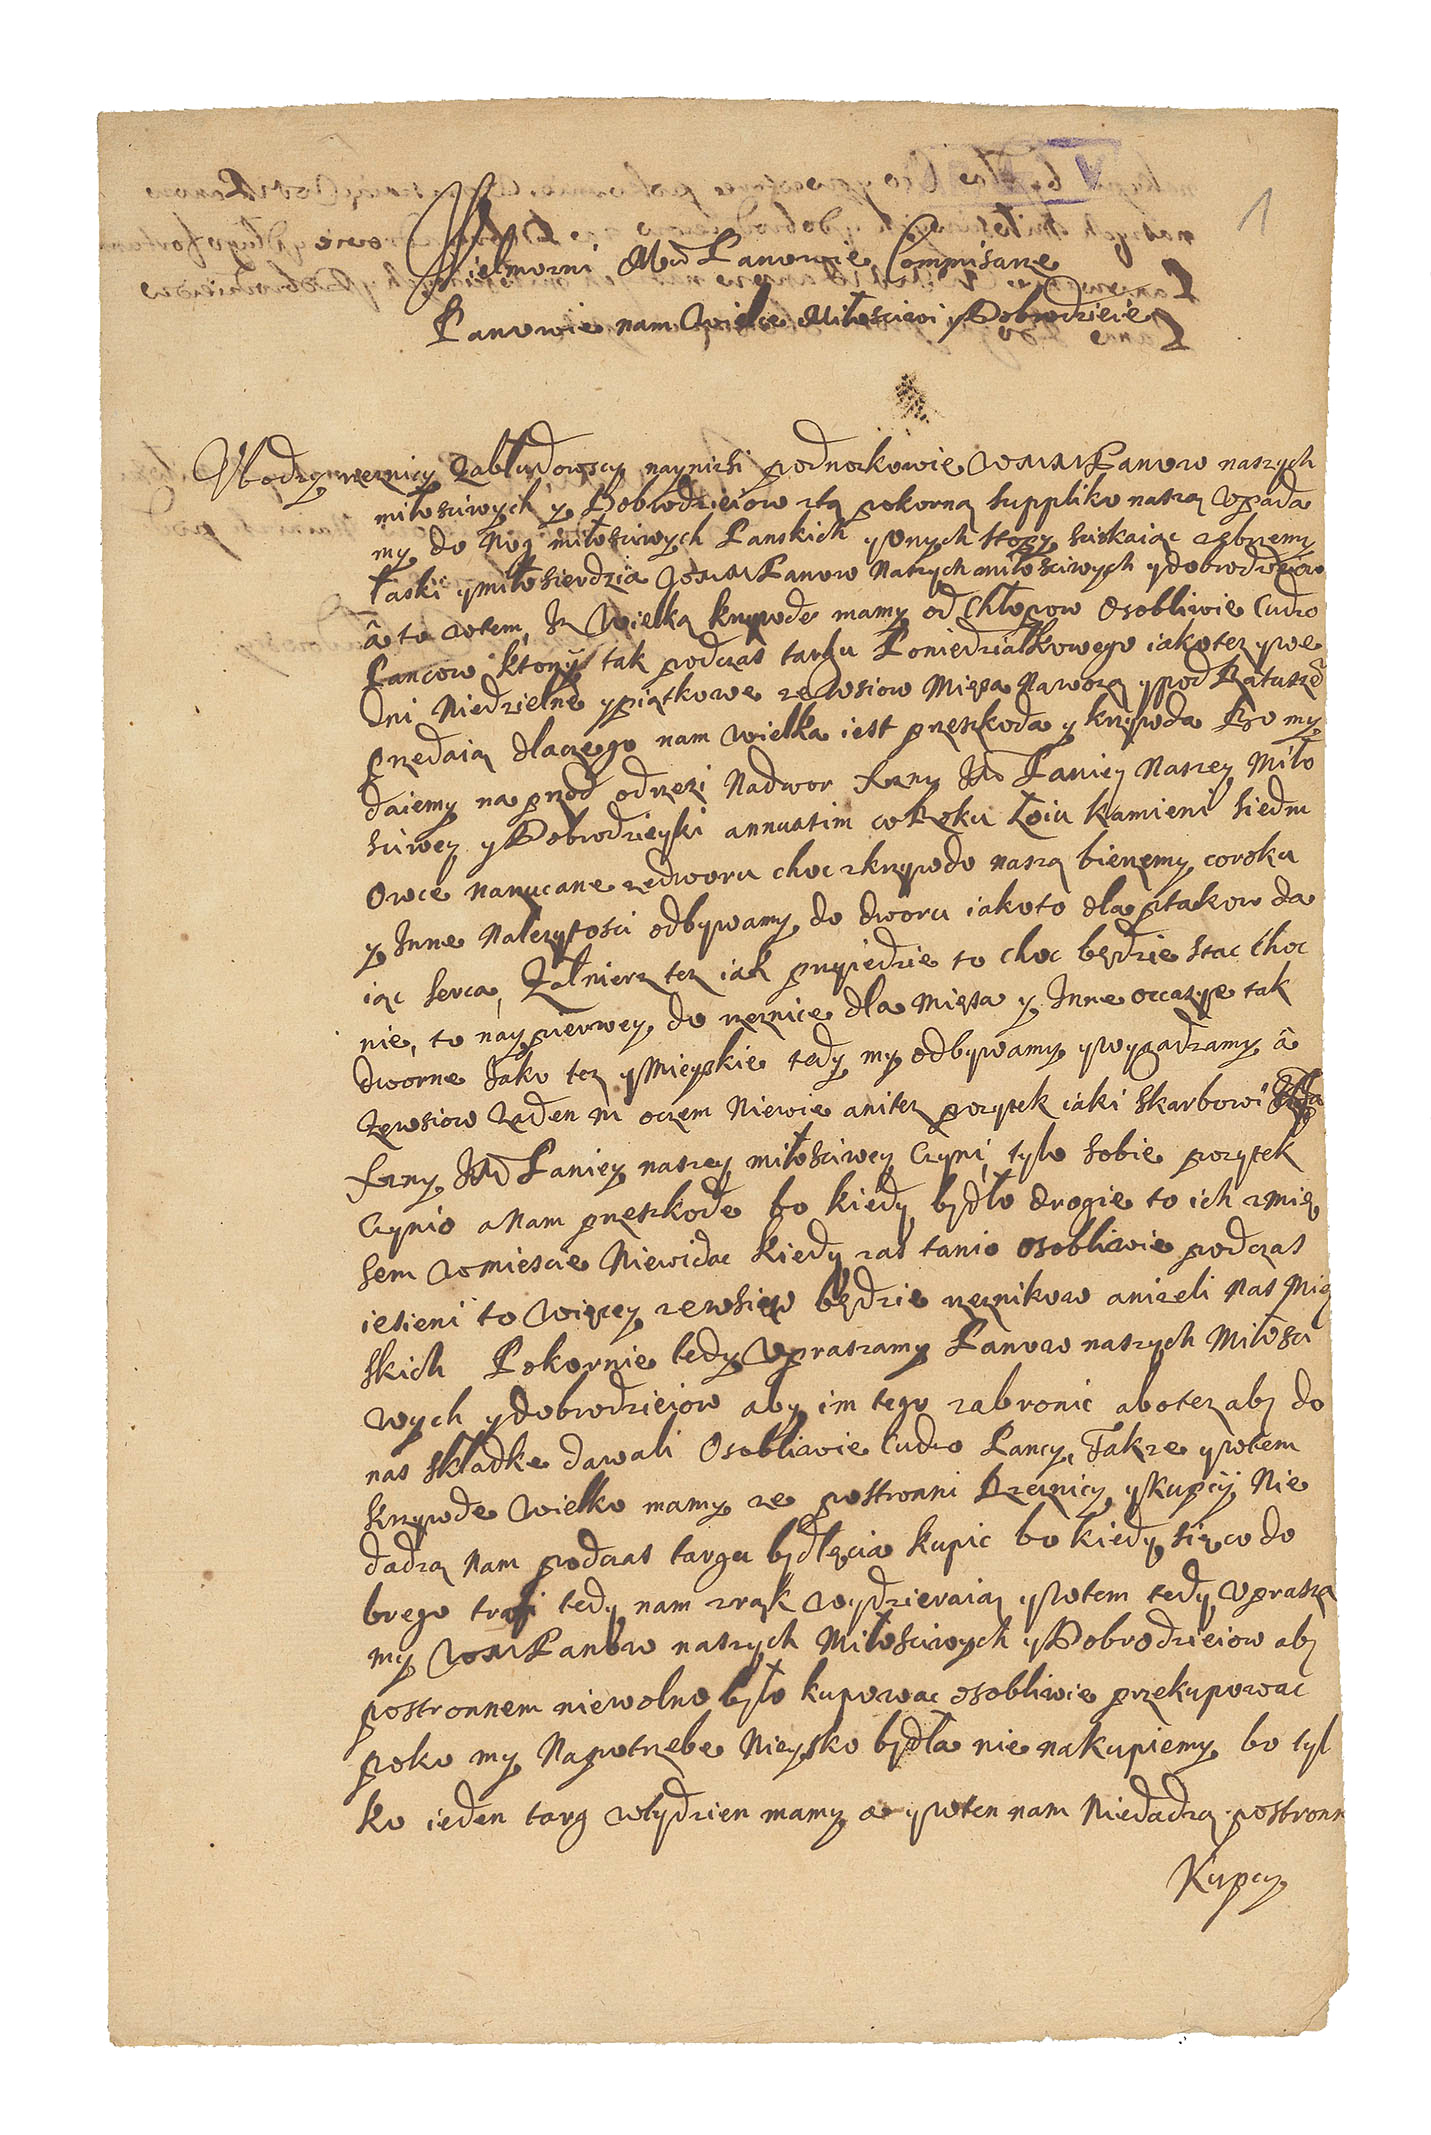 1
Wielmozni Mci Panowie Commisarze
Panowie nam Wielce Miłosciwi y Dobrodzieie
Vbodzy rzeznicy Zabłudowscy naynizsi podnozkowie WMM Panow naszych
miłosciwych y Dobrodzieiow ztą pokorną supplikο naszą vpada
my do Nog miłosciwych Panskich y onych stopy sciskaiąc zebrzemy
łaski y miłosierdzia WMM Panow Naszych miłosciwych y dobrodzieiow
a to wtem, Iz Wielką krzywde mamy od Chłopow Osobliwie Cudzo
Pancow ktorzy tak podczas targu Poniedziałkowego iako tez y we
dni Niedzielne y piątkowe ze wsiow Mięsa Nawozą y pod Ratuszē
przedaią dlaczego nam wielka iest przeszkoda y krzywda Bo my
daiemy na przod od rzezi Na dwor Xzny IM Paniey Naszey Miło
sciwey y Dobrodzieyki annuatim co Roku Łoiu kamieni siedm
Owce narzucane ze dworu choc z krzywdo naszą bierzemy co roku
y Inne Nalezytosci odbywamy do dworu iako to dla ptakow da
iąc serca, Załnierz tez iak przyiedzie to choc będzie stac choc
nie, to nay pierwey do rzeznice dla Mięsa y Inne occazye tak
dworne Jako tez y Mieyskie tedy my odbywamy y wygadzamy a
ze wsiow zaden ni oczem Niewie ani tez pozytek iaki Skarbowi
Xzny IM Paniey naszey miłosciwey Czyni, tylo sobie pozytek
Czynio a Nam przeszkode bo kiedy bydło drogie to ich z mię
sem w miescie Niewidac kiedy zas tanio osobliwie podczas
iesieni to więcey ze wsiow będzie rzeznikow anizeli Nas Miey
skich Pokornie tedy vpraszamy Panow naszych Miłosci
wych y dobrodzieiow aby im tego zabronic abo tez aby do
nas składke dawali Osobliwie Cudzo Pancy, Takze y wtem
krzywde wielko mamy ze postronni Rzeznicy y kupcy Nie
dadzą Nam podczas targu bydlęcia kupic bo kiedy się co do
brego trafi tedy nam z rąk wydzieraią y wtem tedy vprasza
my WM Panow naszych Miłosciwych y Dobrodzieiow aby
postronnem niewolno było kupowac osobliwie przekupowac
poko my Na potrzebe Mieysko bydła nie nakupiemy bo tyl
ko ieden targ w tydzien mamy a y wten nam Niedadzą postronn
Kupcy